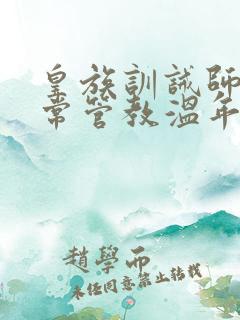 皇族訓誡師
常管教溫年
趙學而
未任同意禁止轉載